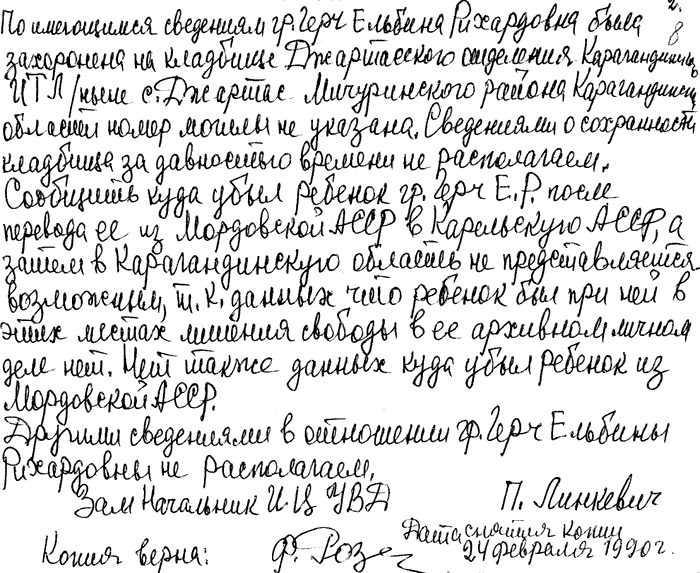 По имеющимся сведениям гр. Герч Ельбина Рихардовна была
захоронена на кладбище Джартасского отделения Карагандинск
ИТЛ /ныне с. Джартас Мичуринского района Карагандинск
области номер могилы не указана. Сведениями о сохранности
кладбища за давностью времени не располагаем.
Сообщить куда убыл ребенок гр. Герч Е.Р. после
перевода ее из Мордовской АССР в Карельскую АССР, а
затем в Карагандинскую область не представляется
возможным, т.к. данных что ребенок был при ней в
этих местах лишения свободы в ее архивном личном
деле нет. Нет также данных куда убыл ребенок из
Мордовской АССР.
Другими сведениями в отношении гр. Герч Ельбины
Рихардовны не располагаем.
Зам Начальник И.Ц УВД П. Линкевич
Дата снятия копии
Копия верна: Ф. Роз 24 февраля 1990г.